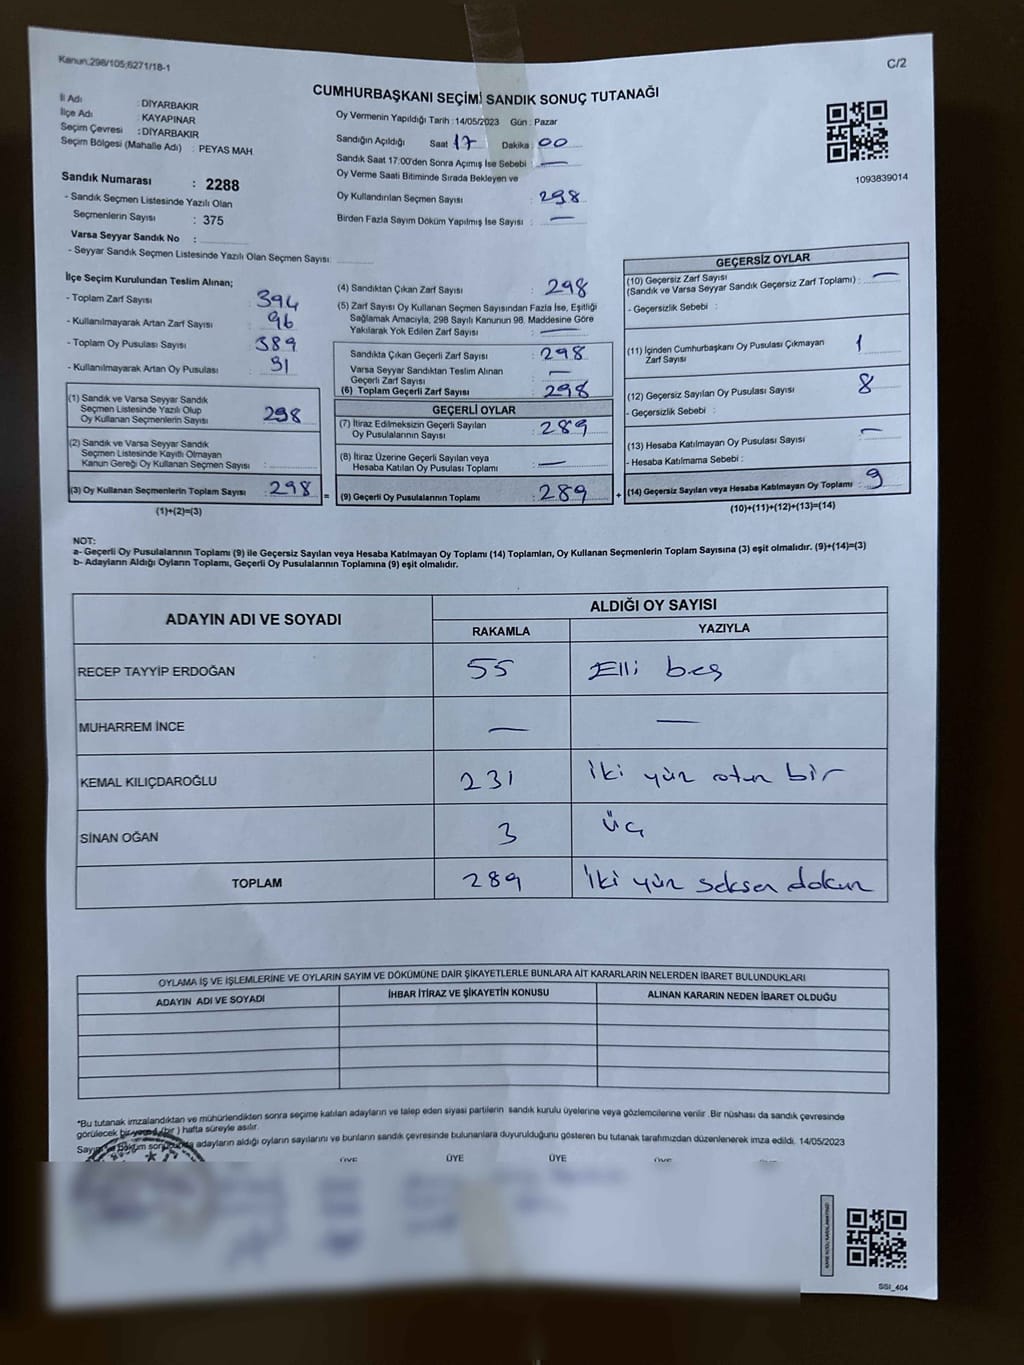 Kanun:298/105;6271/18-1
C/2
CUMHURBAŞKANI SEÇİMİ SANDIK SONUÇ TUTANAĞI
İl Adı : DİYARBAKIR
İlçe Adı : KAYAPINAR
Seçim Çevresi : DİYARBAKIR
Seçim Bölgesi (Mahalle Adı) : PEYAS MAH.
Sandık Numarası : 2288
- Sandık Seçmen Listesinde Yazılı Olan
Seçmenlerin Sayısı : 375
Varsa Seyyar Sandık No :
- Seyyar Sandık Seçmen Listesinde Yazılı Olan Seçmen Sayısı:
Oy Vermenin Yapıldığı Tarih : 14/05/2023 Gün : Pazar
Sandığın Açıldığı Saat 17 Dakika : 00
Sandık Saat 17:00'den Sonra Açımış İse Sebebi : —
Oy Verme Saati Bitiminde Sırada Bekleyen ve
Oy Kullandırılan Seçmen Sayısı : 298
Birden Fazla Sayım Döküm Yapılmış İse Sayısı : —
1093839014
İlçe Seçim Kurulundan Teslim Alınan;
- Toplam Zarf Sayısı : 394
- Kullanılmayarak Artan Zarf Sayısı : 96
- Toplam Oy Pusulası Sayısı : 389
- Kullanılmayarak Artan Oy Pusulası : 91
(1) Sandık ve Varsa Seyyar Sandık
Seçmen Listesinde Yazılı Olup
Oy Kullanan Seçmenlerin Sayısı : 298
(2) Sandık ve Varsa Seyyar Sandık
Seçmen Listesinde Kayıtlı Olmayan
Kanun Gereği Oy Kullanan Seçmen Sayısı :
(3) Oy Kullanan Seçmenlerin Toplam Sayısı : 298
(1)+(2)=(3)
(4) Sandıktan Çıkan Zarf Sayısı : 298
(5) Zarf Sayısı Oy Kullanan Seçmen Sayısından Fazla İse, Eşitliği
Sağlamak Amacıyla, 298 Sayılı Kanunun 98. Maddesine Göre
Yakılarak Yok Edilen Zarf Sayısı : —
Sandıkta Çıkan Geçerli Zarf Sayısı : 298
Varsa Seyyar Sandıktan Teslim Alınan
Geçerli Zarf Sayısı : —
(6) Toplam Geçerli Zarf Sayısı : 298
GEÇERLİ OYLAR
(7) İtiraz Edilmeksizin Geçerli Sayılan
Oy Pusulalarının Sayısı : 289
(8) İtiraz Üzerine Geçerli Sayılan veya
Hesaba Katılan Oy Pusulası Toplamı : —
=
(9) Geçerli Oy Pusulalarının Toplamı : 289
+
GEÇERSİZ OYLAR
(10) Geçersiz Zarf Sayısı
(Sandık ve Varsa Seyyar Sandık Geçersiz Zarf Toplamı) : —
- Geçersizlik Sebebi :
(11) İçinden Cumhurbaşkanı Oy Pusulası Çıkmayan
Zarf Sayısı : 1
(12) Geçersiz Sayılan Oy Pusulası Sayısı : 8
- Geçersizlik Sebebi :
(13) Hesaba Katılmayan Oy Pusulası Sayısı : —
- Hesaba Katılmama Sebebi :
(14) Geçersiz Sayılan veya Hesaba Katılmayan Oy Toplamı : 9
(10)+(11)+(12)+(13)=(14)
NOT:
a- Geçerli Oy Pusulalarının Toplamı (9) ile Geçersiz Sayılan veya Hesaba Katılmayan Oy Toplamı (14) Toplamları, Oy Kullanan Seçmenlerin Toplam Sayısına (3) eşit olmalıdır. (9)+(14)=(3)
b- Adayların Aldığı Oyların Toplamı, Geçerli Oy Pusulalarının Toplamına (9) eşit olmalıdır.
ADAYIN ADI VE SOYADI ALDIĞI OY SAYISI
RAKAMLA YAZIYLA
RECEP TAYYİP ERDOĞAN 55 Elli beş
MUHARREM İNCE — —
KEMAL KILIÇDAROĞLU 231 iki yüz otuz bir
SİNAN OĞAN 3 üç
TOPLAM 289 iki yüz seksen dokuz
OYLAMA İŞ VE İŞLEMLERİNE VE OYLARIN SAYIM VE DÖKÜMÜNE DAİR ŞİKAYETLERLE BUNLARA AİT KARARLARIN NELERDEN İBARET BULUNDUKLARI
ADAYIN ADI VE SOYADI İHBAR İTİRAZ VE ŞİKAYETİN KONUSU ALINAN KARARIN NEDEN İBARET OLDUĞU
*Bu tutanak imzalandıktan ve mühürlendikten sonra seçime katılan adayların ve talep eden siyasi partilerin sandık kurulu üyelerine veya gözlemcilerine verilir .Bir nüshası da sandık çevresinde
görülecek bir yere 1 (bir ) hafta süreyle asılır.
Sayım ve döküm sonucunda adayların aldığı oyların sayılarını ve bunların sandık çevresinde bulunanlara duyurulduğunu gösteren bu tutanak tarafımızdan düzenlenerek imza edildi. 14/05/2023
ÜYE ÜYE ÜYE ÜYE
SSI_404